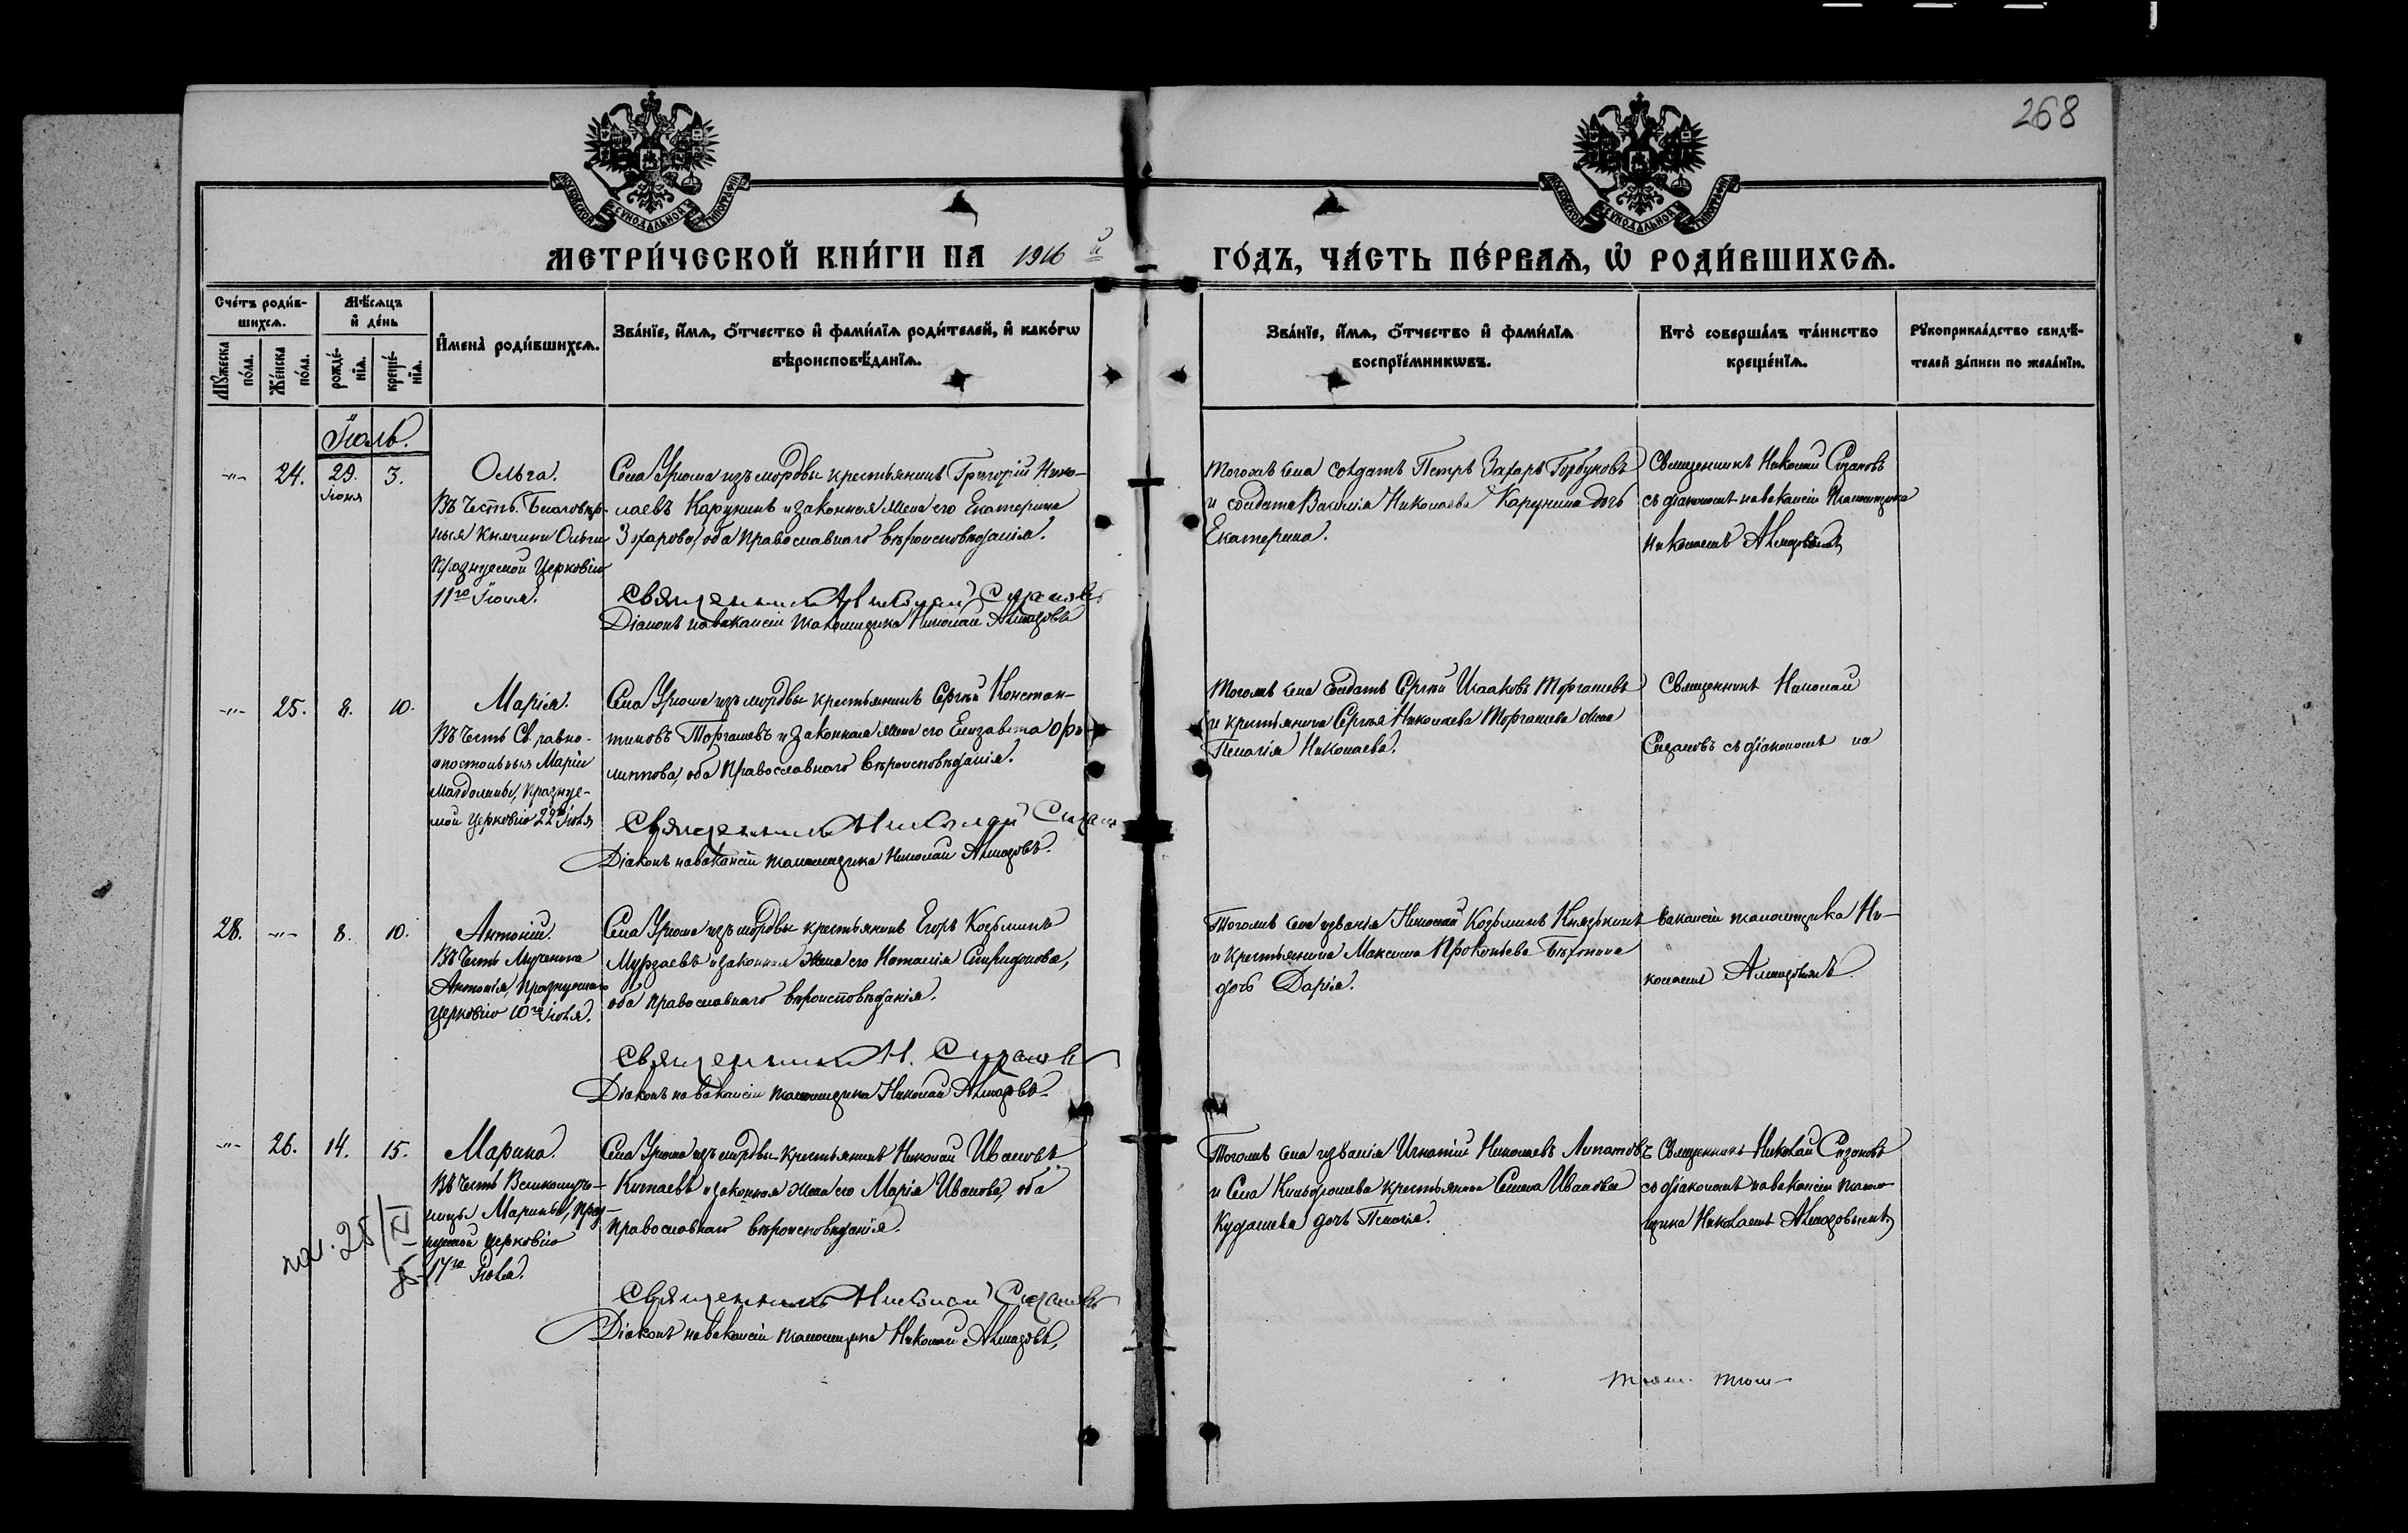 268
МОСКОВСКОЙ СѴНОДАЛЬНОЙ ТИПОГРАФІИ
МОСКОВСКОЙ СѴНОДАЛЬНОЙ ТИПОГРАФІИ
МЕТРИ́ЧЕСКОЙ КНИ́ГИ НА 1916 й
ГО́ДЪ, ЧА́СТЬ ПЕ́РВАѦ, Ѡ҆ РОДИ́ВШИХСѦ.
Сче́тъ роди́в-
шихсѧ.
Мꙋ́жеска по́ла.
Же́нска по́ла.
Мѣ́сѧцъ
и҆ де́нь
рожде́-
нїѧ.
креще́-
нїѧ.
И҆мена̀ роди́вшихсѧ.
Зва́нїе, и҆́мѧ, ѻ҆́тчество и҆ фами́лїѧ роди́телей, и҆ како́гѡ
вѣроисповѣ́данїѧ.
Зва́нїе, и҆́мѧ, ѻ҆́тчество и҆ фами́лїѧ
воспрїе́мникѡвъ.
Кто̀ соверша́лъ та́инство
креще́нїѧ.
Рꙋкоприкла́дство свидѣ́-
телей за́писи по жела́нїю.
Іюль.
-"- 24. 29. Іюня 3.
Ольга.
Въ честь Благовѣр-
ныя Княгини Ольги
празднуемой Церковію
11го Іюля.
Села Урюма изъ мордвы крестьянинъ Григорій Нико-
лаевъ Карунинъ и законная жена его Екатерина
Захарова, оба православнаго вѣроисповѣданія.
Священникъ Николай Сызановъ
Діаконъ на вакансіи псаломщика Николай Алмазовъ
Тогожъ села солдатъ Петръ Захаръ Горбуновъ
и солдата Василія Николаева Карунина дочь
Екатерина.
Священникъ Николай Сызановъ
съ діакономъ на вакансіи псаломщика
Николаемъ Алмазовымъ
-"- 25. 8. 10.
Марія.
Въ честь Св. равно-
апостольныя Маріи
Магдалины, празднуе-
мой Церковію 22го Іюля
Села Урюма изъ мордвы крестьянинъ Сергѣй Констан-
тиновъ Торгашевъ и законная жена его Елизавета Фи-
липпова, оба православнаго вѣроисповѣданія.
Священникъ Николай Сызан
Діаконъ на вакансіи псаломщика Николай Алмазовъ.
Тогожъ села солдатъ Сергѣй Исааковъ Торгашевъ
и крестьянина Сергѣя Николаева Торгашева жена
Пелагія Николаева.
Священникъ Николай
Сызановъ съ діакономъ на
28. -"- 8. 10.
Антоній.
Въ честь Мученика
Антонія, празднуемаго
Церковію 10го Іюля.
Села Урюма изъ мордвы крестьянинъ Егоръ Козьминъ
Мурзаевъ и законная жена его Наталія Спиридонова,
оба православнаго вѣроисповѣданія.
Священникъ Н. Сызановъ
Діаконъ на вакансіи псаломщика Николай Алмазовъ.
Тогожъ села и званія Николай Козьминъ Князькинъ
и крестьянина Максима Прокопьева
дочь Дарія.
вакансіи псаломщика Ни-
колаемъ Алмазовымъ.
-"- 26. 14. 15.
Марина.
Въ честь Великомуче-
ницы Марины, празд-
нуемой Церковію
17го Іюля.
25/XI
Села Урюма изъ мордвы крестьянинъ Николай Ивановъ
Китаевъ и законная жена его Марія Иванова, оба
православнаго вѣроисповѣданія.
Священникъ Николай Сызановъ
Діаконъ на вакансіи псаломщика Николай Алмазовъ,
Тогожъ села и званія Игнатій Николаевъ Липатовъ
и Села Кильдюшева крестьянина Семена Иванова
Кудашева дочь Пелагія.
Священникъ Николай Сызановъ
съ діакономъ на вакансіи псалом-
щика Николаемъ Алмазовымъ